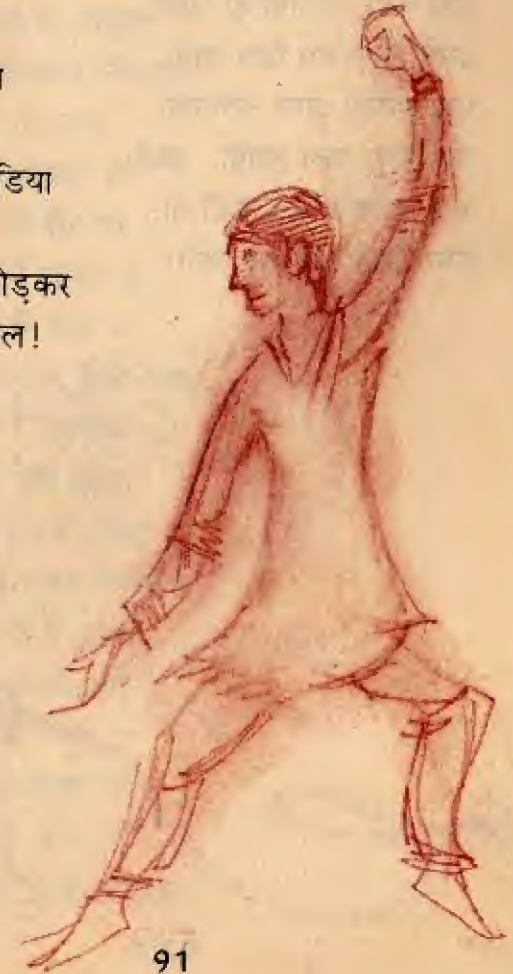 डिया
ोड़कर
ल!
91